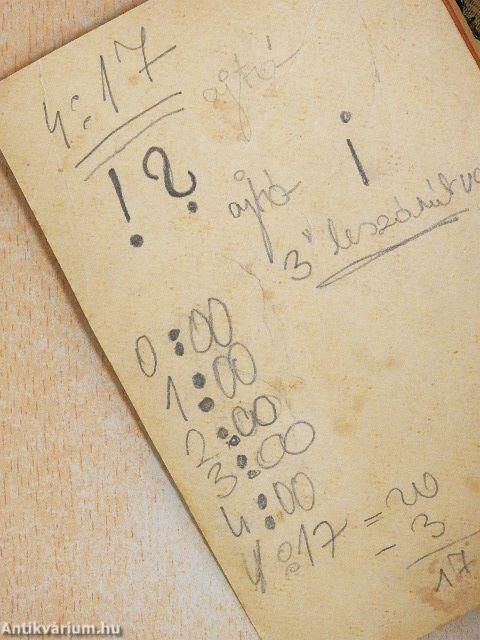 4:17
ajtó
!?
ajtó i
3
0:00
1:00
2:00
3:00
4:00
4:17 = 20
- 3
17
Antikvárium.hu